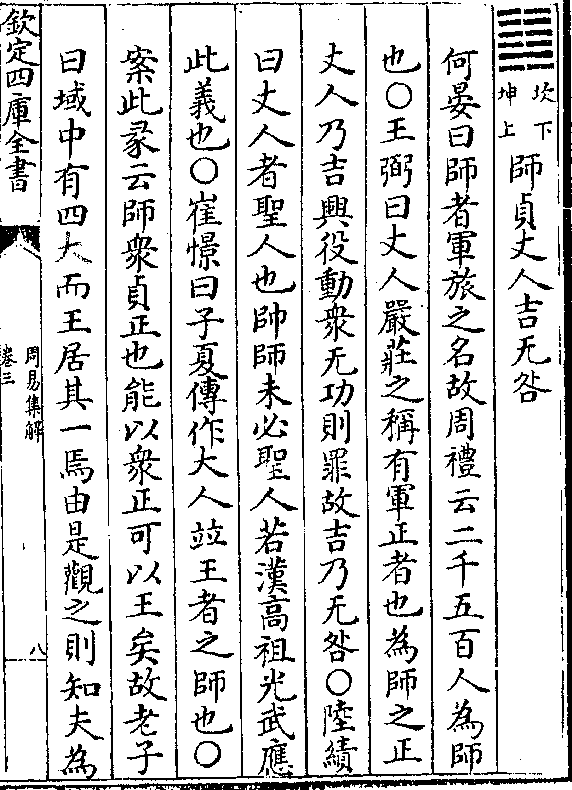 坎下
坤上
師貞丈人吉无咎
何晏曰師者軍旅之名故周禮云二千五百人為師
也○王弼曰丈人嚴莊之稱有軍正者也為師之正
丈人乃吉興役動衆无功則罪故吉乃无咎○陸績
曰丈人者聖人也帥師未必聖人若漢高祖光武應
此義也○崔憬曰子夏傳作大人竝王者之師也○
案此彖云師衆貞正也能以衆正可以王矣故老子
曰域中有四大而王居其一焉由是觀之則知夫為
欽定四庫全書
周易集解
卷三
八